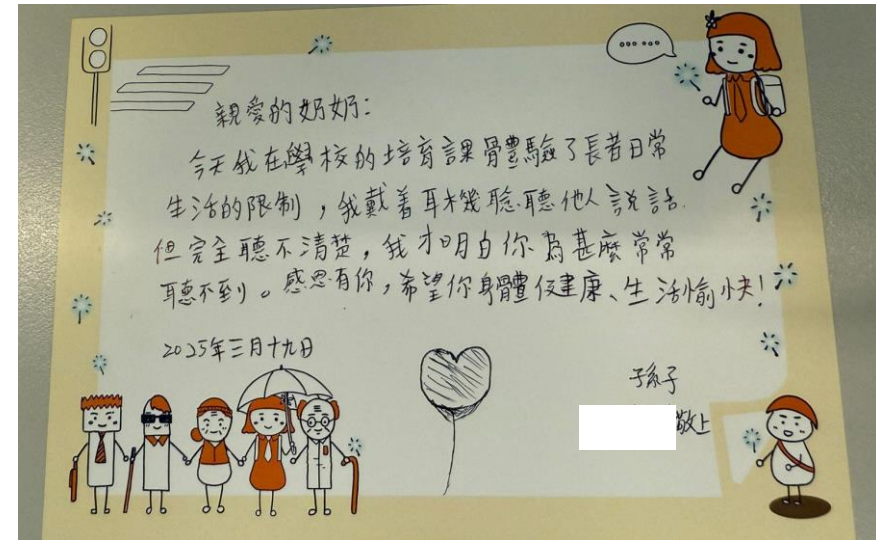 ......
親愛的奶奶：
今天我在學校的培育課體驗了長者日常
生活的限制，我戴着耳機聆聽他人說話
但完全聽不清楚，我才明白你為甚麼常常
聽不到。感恩有你，希望你身體健康、生活愉快！
2025年三月十九日
孫子
敬上